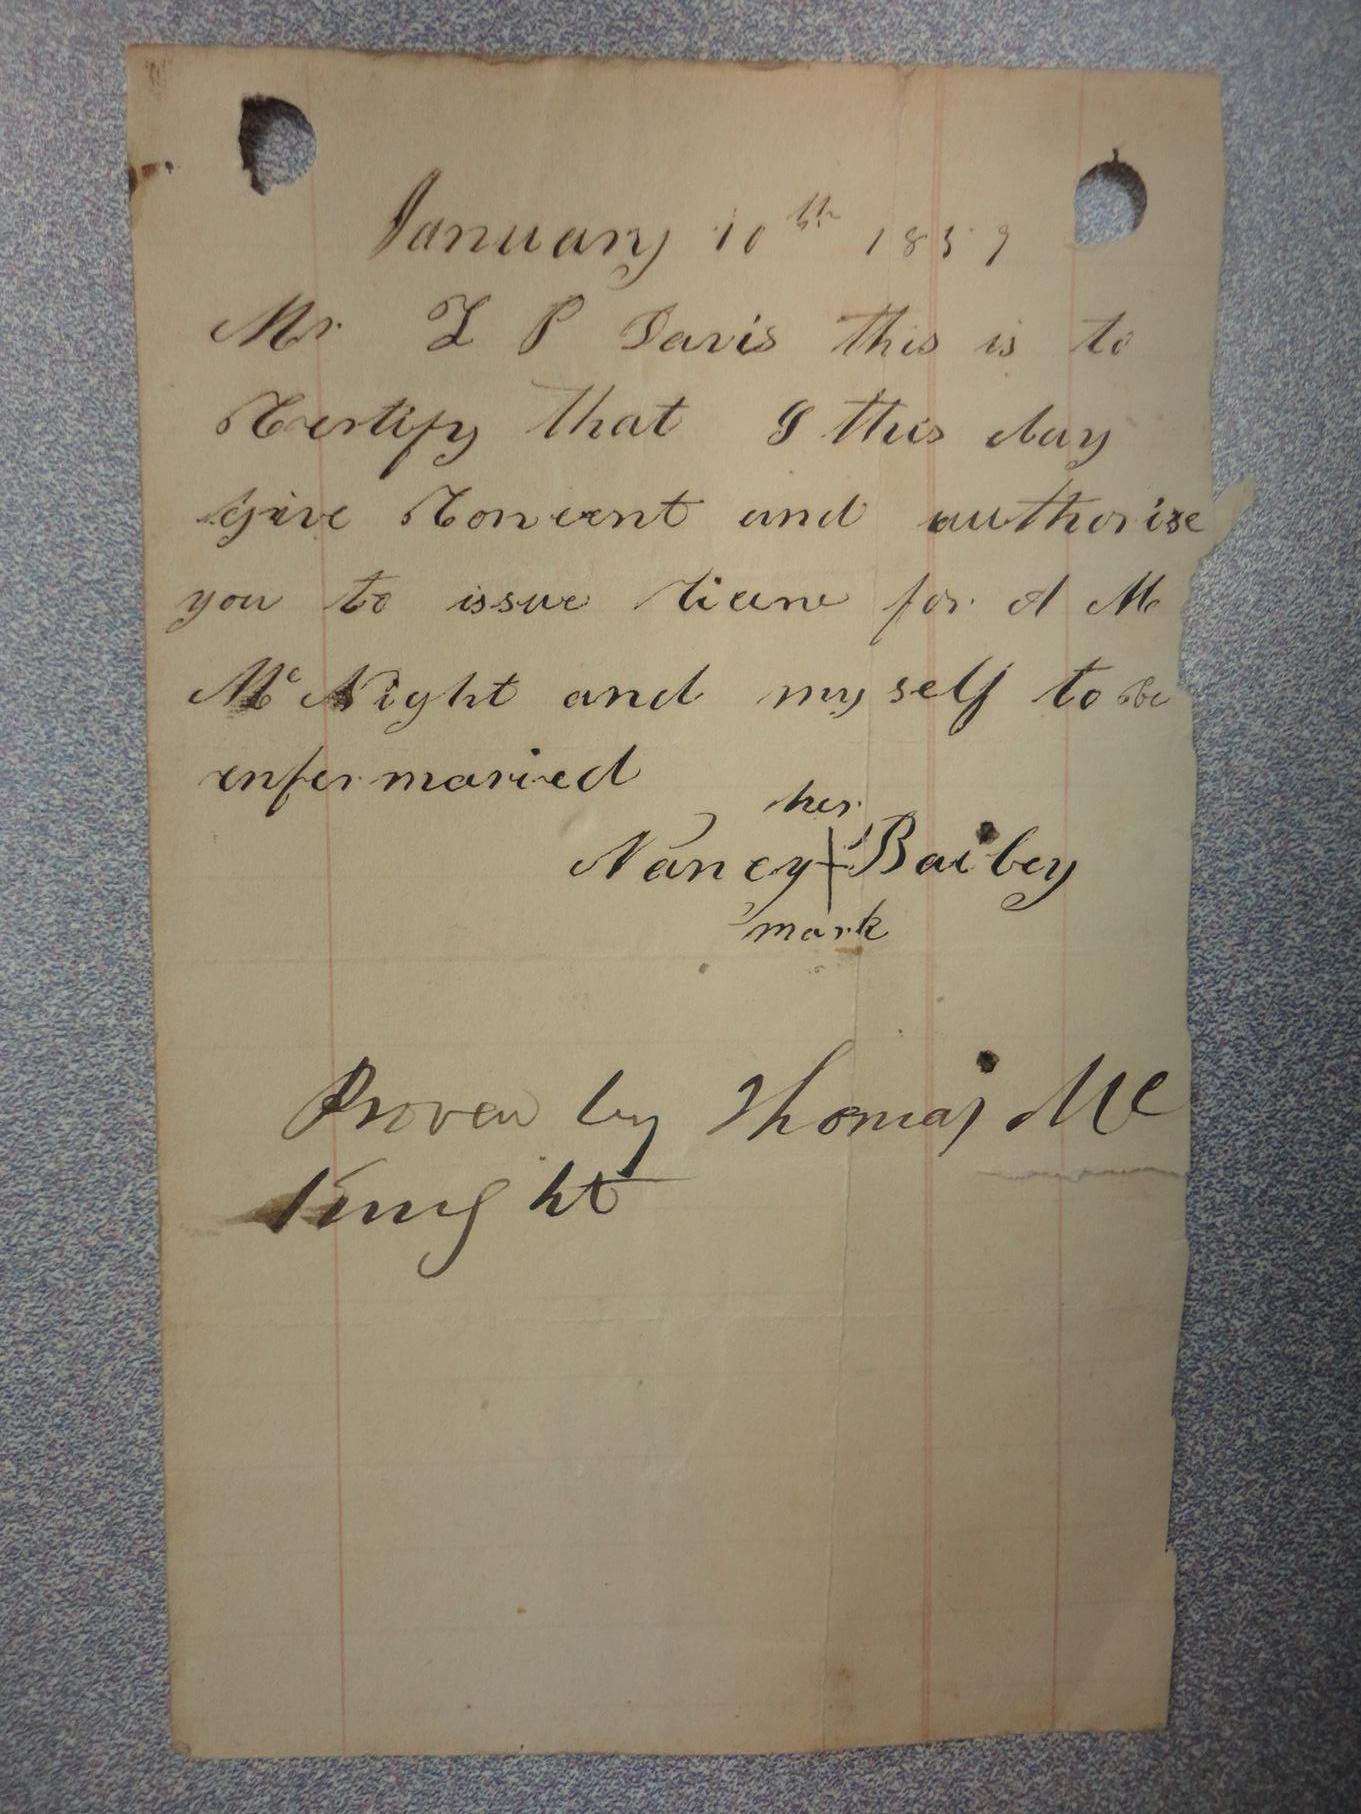 January 10th 1859
Mr. L P Davis this is to
Certify that I this day
Give Concent and authorise
you to issue licens for A M
Mc Night and my self to be
enfermaried
her
Nancy + Bailey
mark
Proven by Thomas Mc
Knight